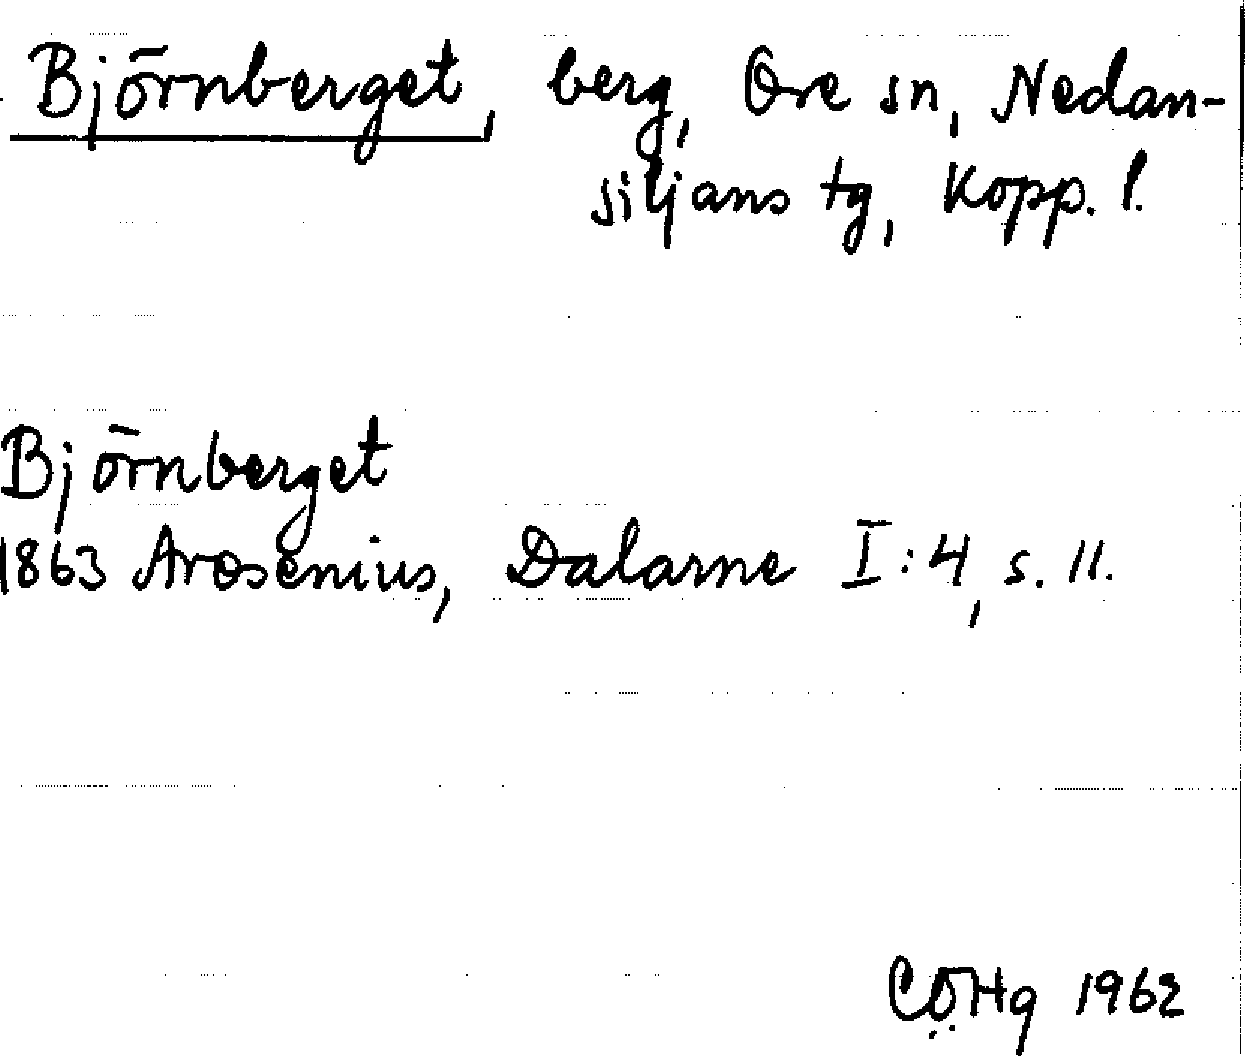 Björnberget, berg, Ore sn, Nedan-
siljans tg, Kopp. l.
Björnberget
1863 Arosenius, Dalarne I:4, s. 11.
1962